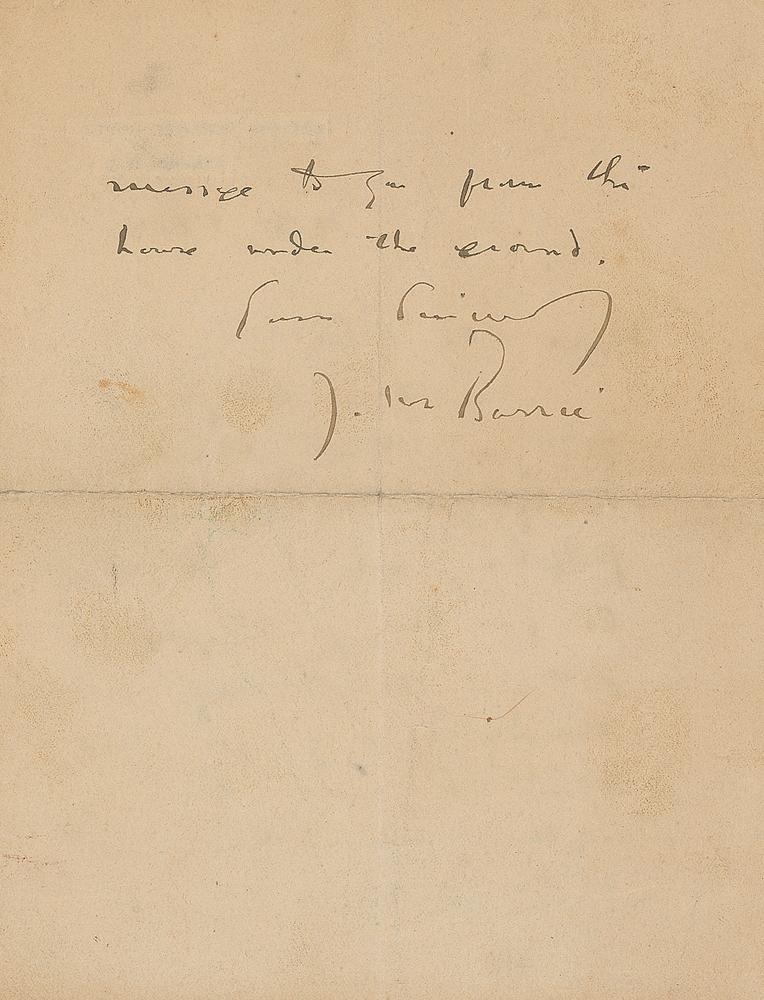 message to you from the
house under the ground.
Yours Sincerely
J. M. Barrie